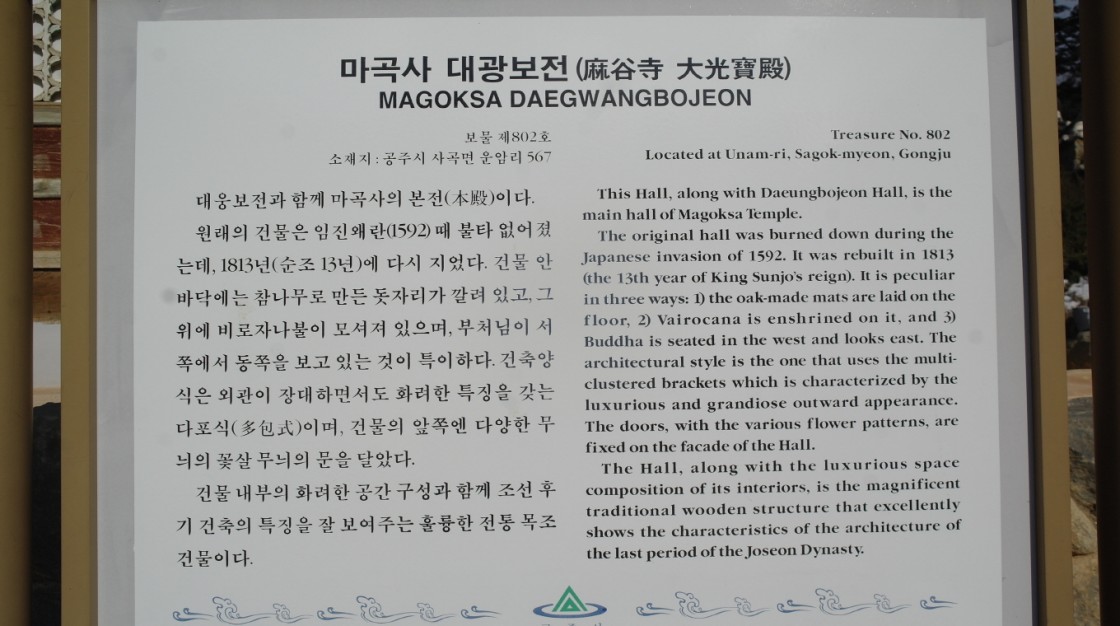 마곡사 대광보전(麻谷寺 大光寶殿)
MAGOKSA DAEGWANGBOJEON
보물 제802호
소재지 : 공주시 사곡면 운암리 567
대웅보전과 함께 마곡사의 본전(本殿)이다.
원래의 건물은 임진왜란(1592) 때 불타 없어졌
는데, 1813년(순조 13년)에 다시 지었다. 건물 안
바닥에는 참나무로 만든 돗자리가 깔려 있고, 그
위에 비로자나불이 모셔져 있으며, 부처님이 서
쪽에서 동쪽을 보고 있는 것이 특이하다. 건축양
식은 외관이 장대하면서도 화려한 특징을 갖는
다포식(多包式)이며, 건물의 앞쪽엔 다양한 무
늬의 꽃살 무늬의 문을 달았다.
건물 내부의 화려한 공간 구성과 함께 조선 후
기 건축의 특징을 잘 보여주는 훌륭한 전통 목조
건물이다.
Treasure No. 802
Located at Unam-ri, Sagok-myeon, Gongju
This Hall, along with Daeungbojeon Hall, is the
main hall of Magoksa Temple.
The original hall was burned down during the
Japanese invasion of 1592. It was rebuilt in 1813
(the 13th year of King Sunjo's reign). It is peculiar
in three ways: 1) the oak-made mats are laid on the
floor, 2) Vairocana is enshrined on it, and 3)
Buddha is seated in the west and looks east. The
architectural style is the one that uses the multi-
clustered brackets which is characterized by the
luxurious and grandiose outward appearance.
The doors, with the various flower patterns, are
fixed on the facade of the Hall.
The Hall, along with the luxurious space
composition of its interiors, is the magnificent
traditional wooden structure that excellently
shows the characteristics of the architecture of
the last period of the Joseon Dynasty.